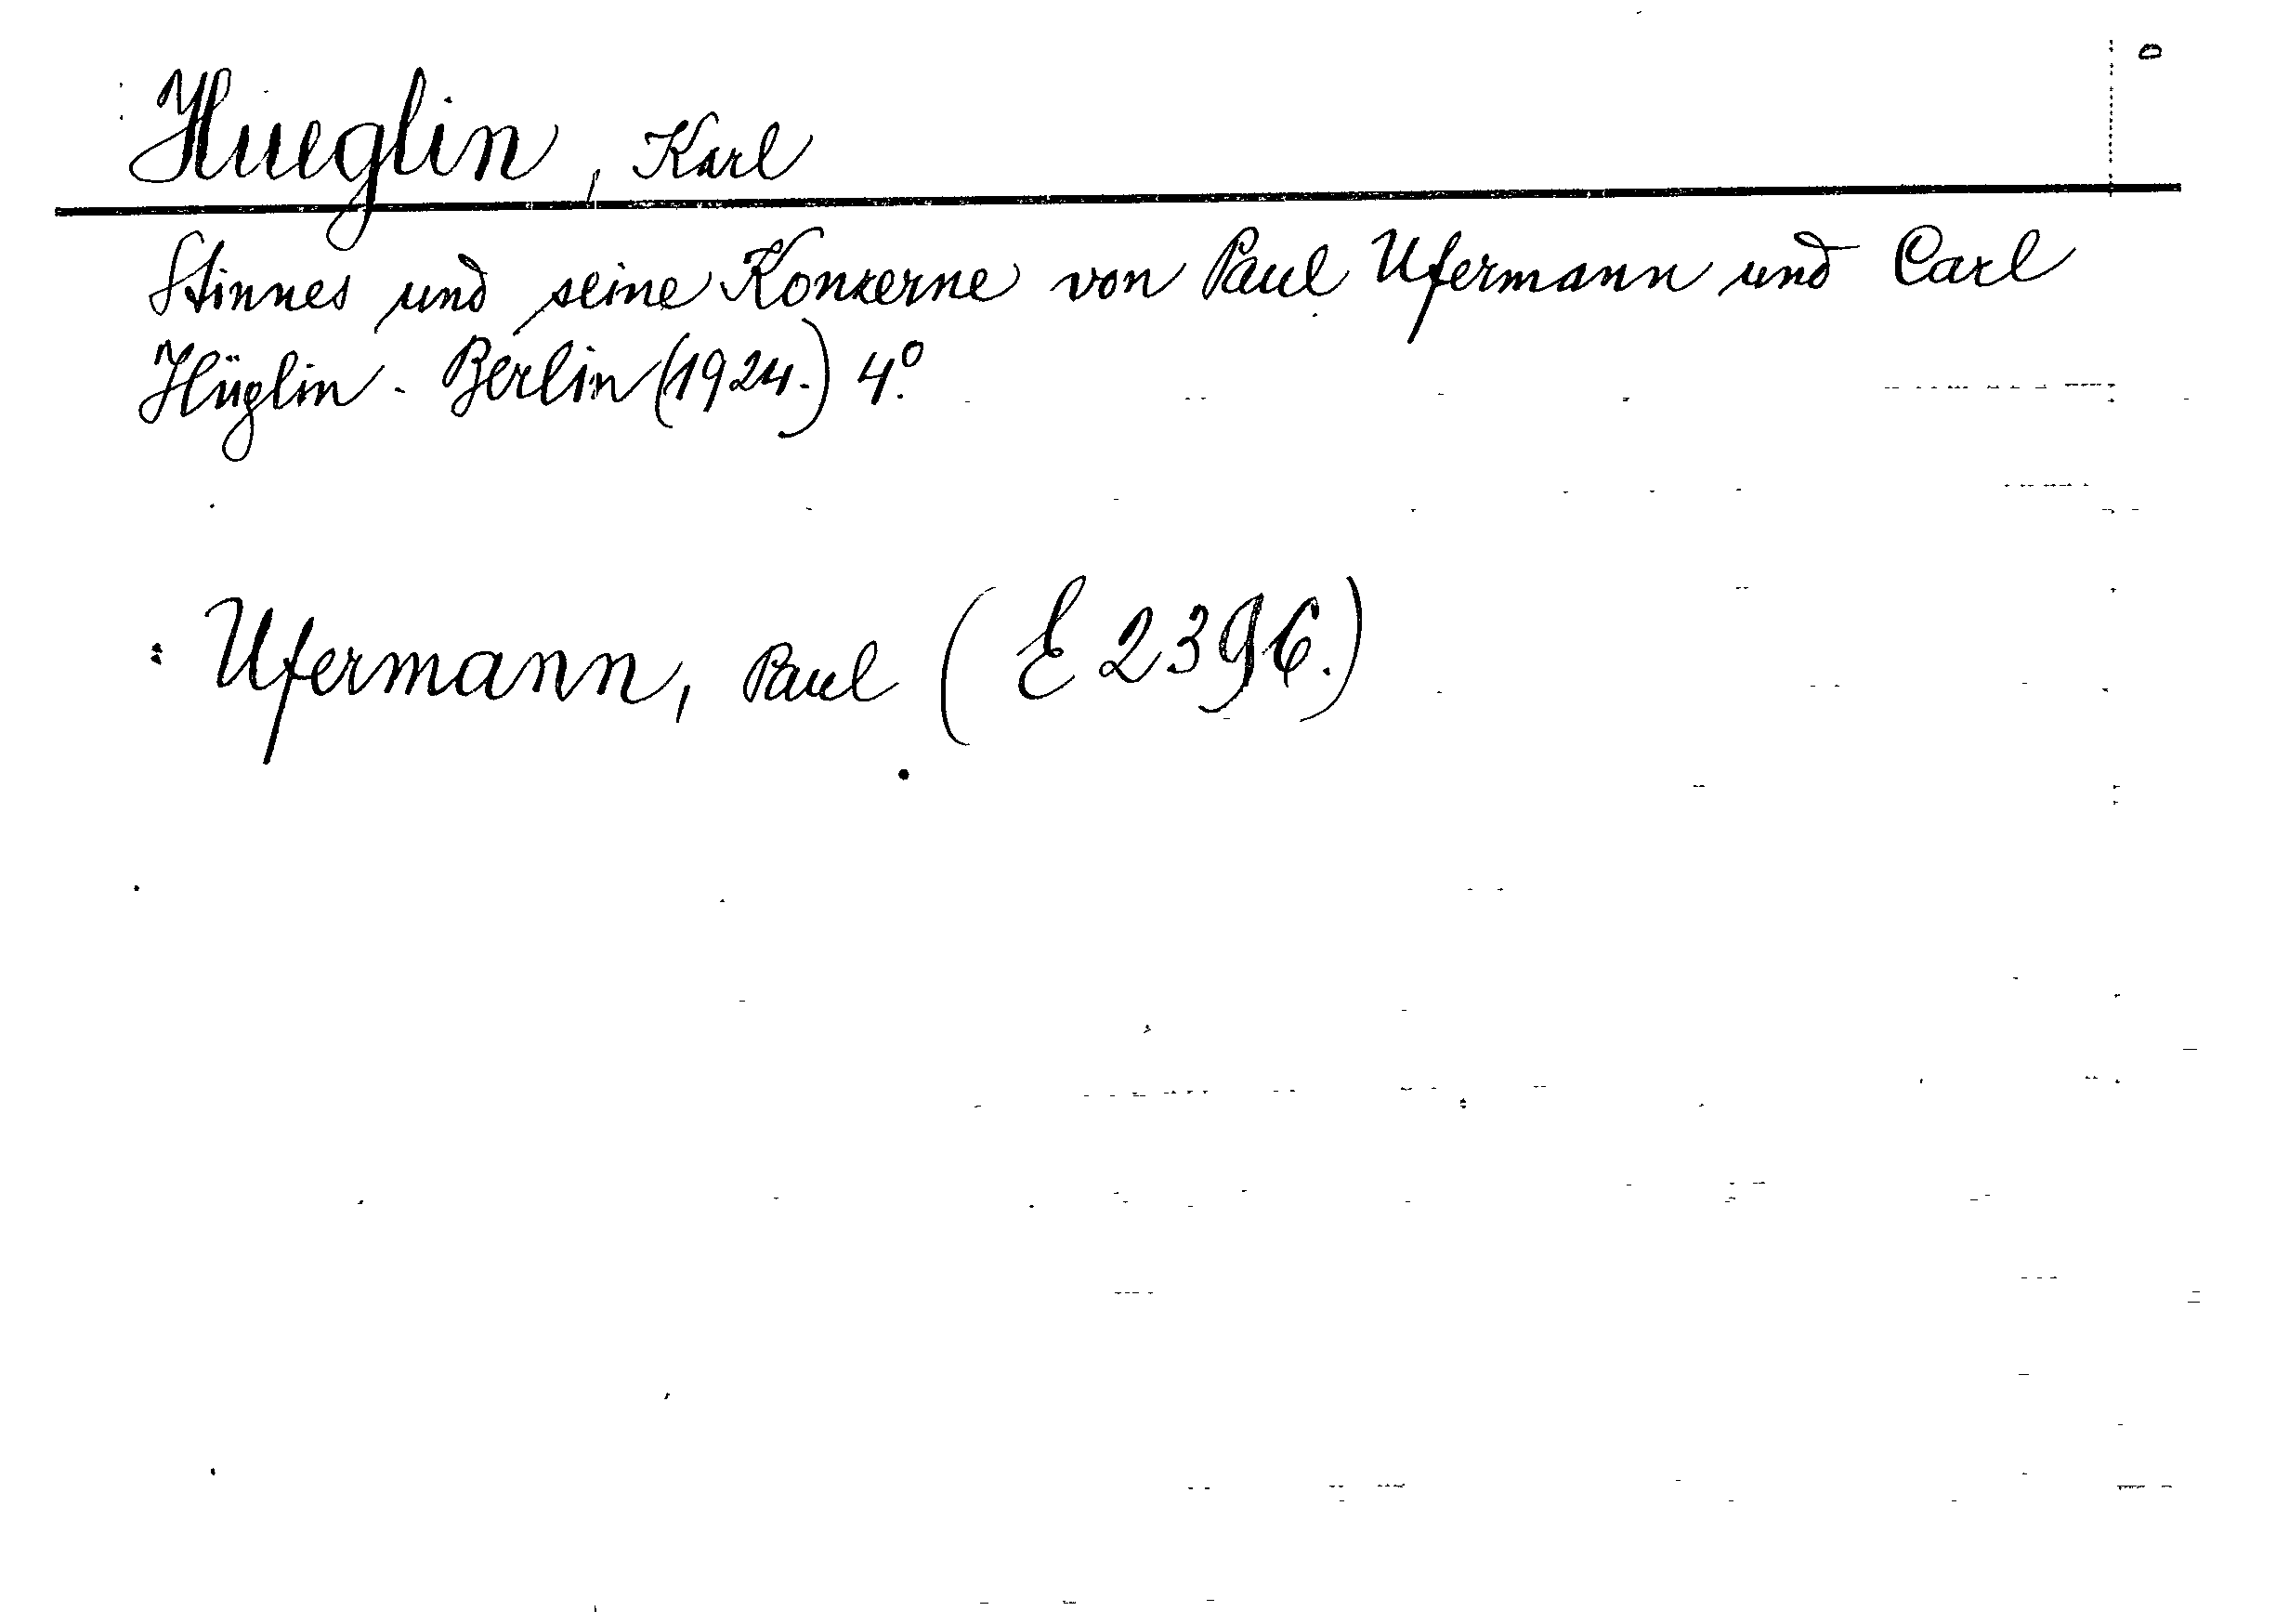 Hueglin, Karl
Stinnes und seine Konzerne von Paul Ufermann und Carl
Hüglin. Berlin (1924.) 4°.
: Ufermann, Paul (E 2396.)